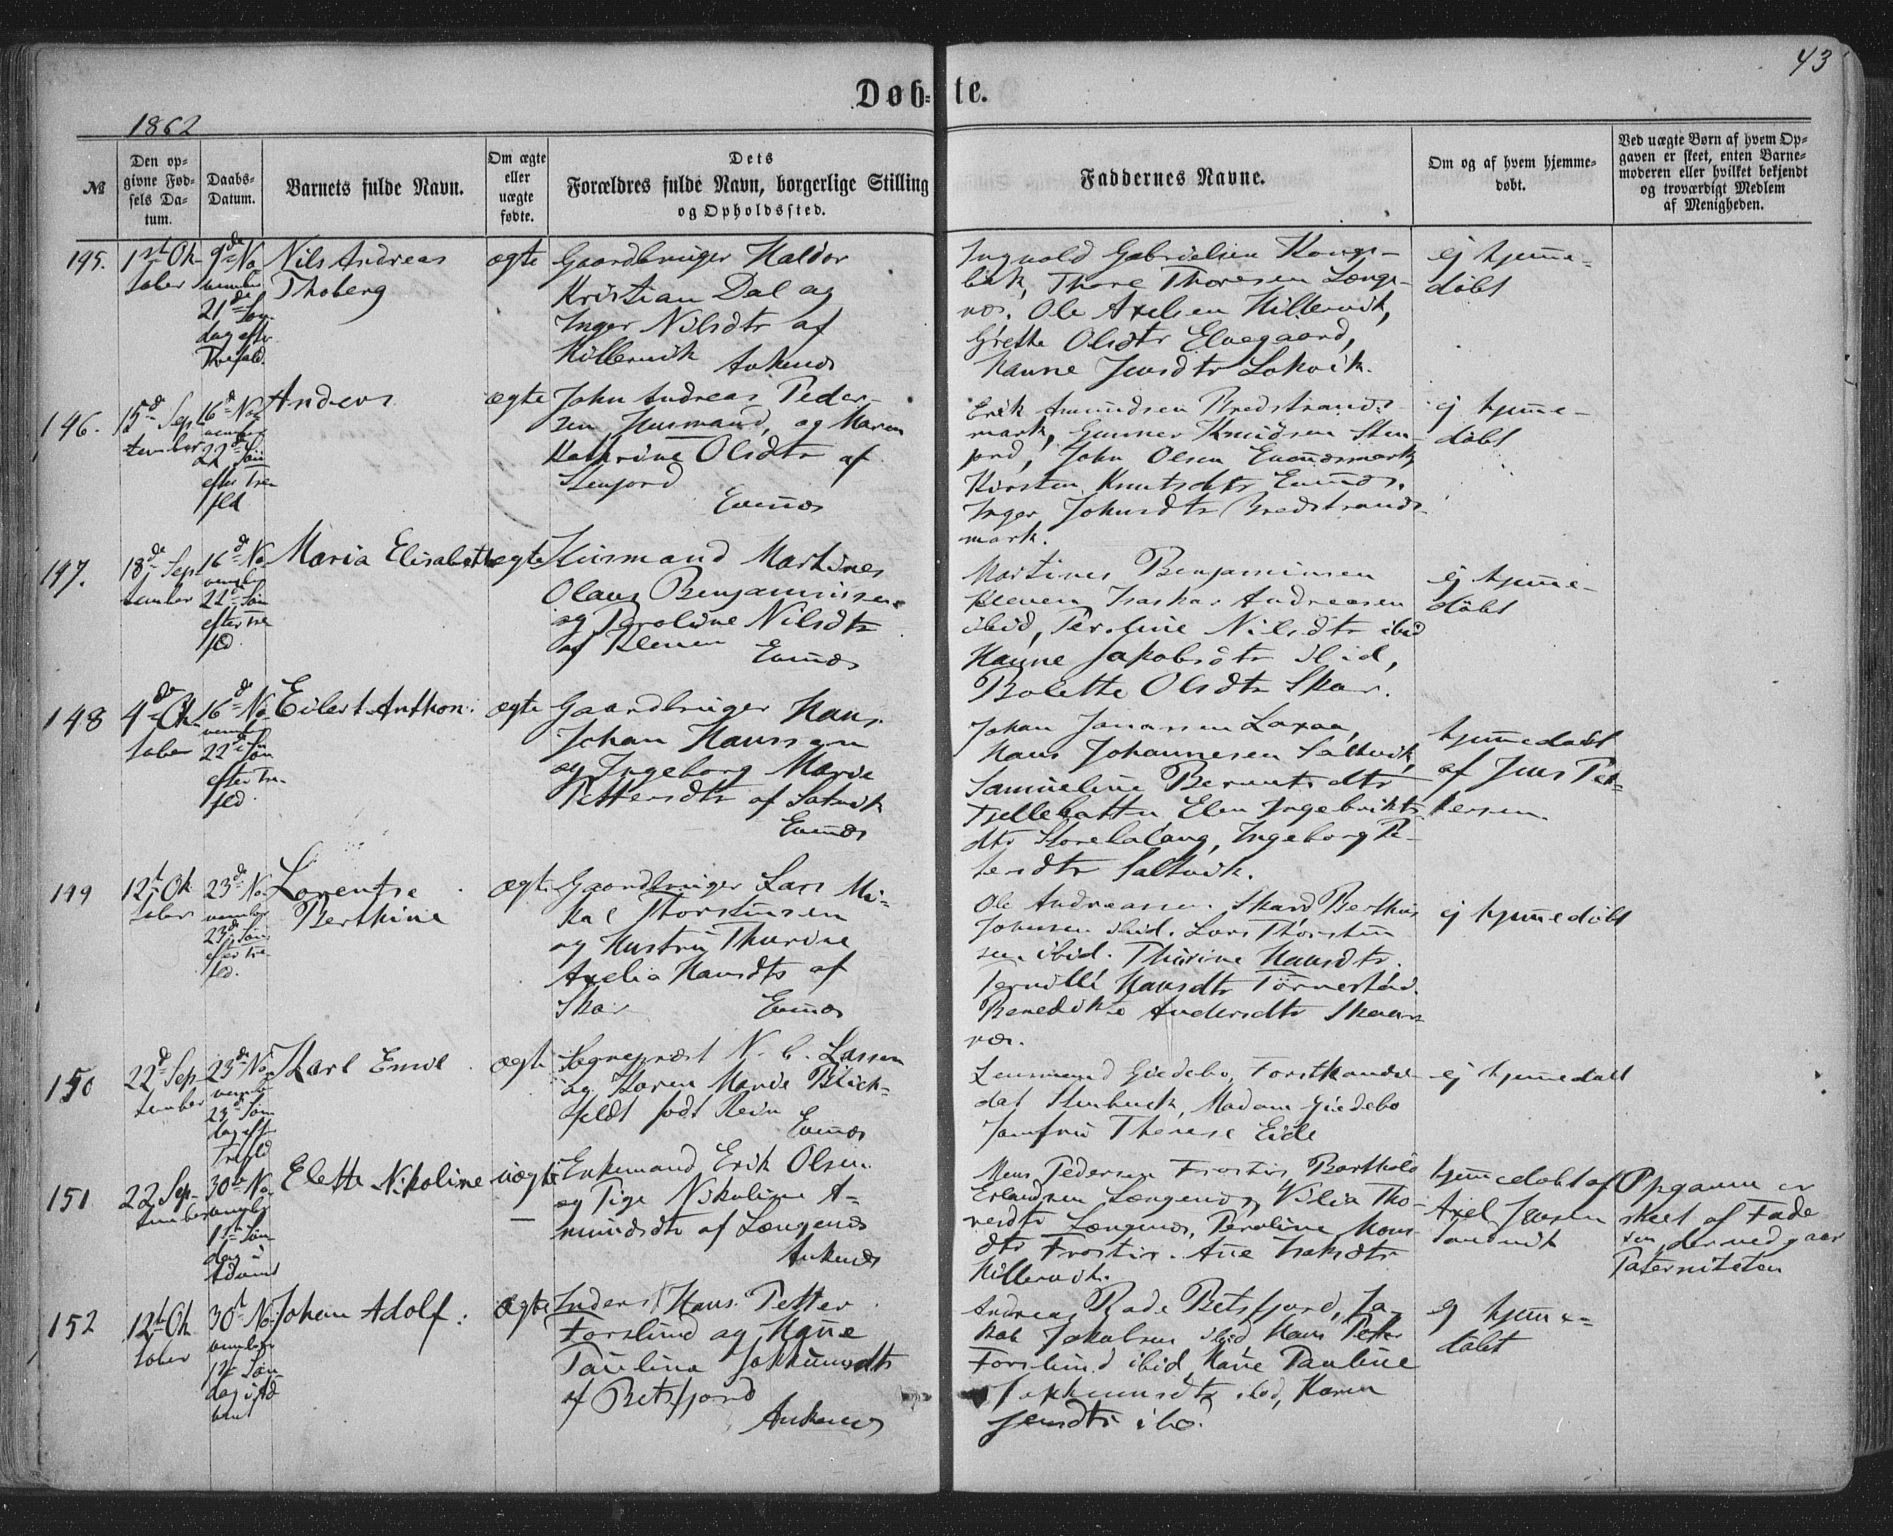 43
Døb-te.
1862
№
Den op-
givne Fød-
sels Da-
tum.
Daabs-
Datum.
Barnets fulde Navn.
Om ægte
eller
uægte
fødte.
Dets
Forældres fulde Navn, borgerlige Stilling
og Opholdssted.
Faddernes Navne.
Om og af hvem hjemme-
døbt.
Ved uægte Børn af hvem Op-
gaven er skeet, enten Barne-
moderen eller hvilket bekjendt
og troværdigt Medlem
af Menigheden.
195.
1st Ok-
tober
9de No-
vember
21de Søn-
dag efter
Trefold.
Nils Andreas
Thoberg
ægte
Gaardbruger Haldor
Kristian Dal og
Inger Nilsdtr af
Killervik Ankenes
Ingvald Gabrielsen Kongs-
bak, Thore Thoresen Længe-
nes. Ole Axelsen Killervik,
Grethe Olsdtr Elvegaard,
Hanne Jensdtr Lokvik.
ej hjemme-
døbt
146.
15de Sep-
tember
16de No-
vember
22de Søn
efter Tre
fld
Anders
ægte
John Andreas Peder-
sen Husmand, og Maren
Kathrine Olsdtr af
Stenjord
Evenæs
Erik Amundsen Bredstrands-
mark, Gunner Knudsen Sten-
jord, John Olsen Evenæsmark
Kirsten Knutsdtr Evenæs.
Inger Johnsdtr Bredstrands-
mark.
ej hjemme-
døbt
147.
18de Sep-
tember
16de No-
vember
22de Søn
efter Tre
fld.
Maria Elisabeth
ægte
Husmand Martines
Olaus Benjaminsen
og Peroline Nilsdtr
af Kleven Evenæs
Martines Benjaminsen
Kleven Isaskar Andreasen
ibid, Peroline Nilsdtr ibid
Hanne Jakobsdtr ibid,
Bolette Olsdtr Skar.
ej hjemme-
døbt
148
4de Ok-
tober
16de No-
vember
22de Søn
efter Tre-
fld.
Eilert Anthon:
ægte
Gaardbruger Hans
Johan Hanssen
og Ingeborg Marie
Pettersdtr af Saltvik
Evenæs
Johan Jonassen Laxaa,
Hans Johannesen Saltvik,
Samueline Berntsdtr
Fjellebotten, Elen Ingebrikts-
dtr Storehalaug, Ingeborg Pe-
tersdtr Saltvik.
hjemmedøbt
af Jens Pet-
tersen.
149
12te Ok-
tober
23de No-
vember
23de Søn
efter Tre-
fld.
Lorentse
Berthine
ægte
Gaardbruger Lars Mi-
kal Thorstensen
og Hustru Thurine
Axelia Hansdtr af
Skar Evenæs
Ole Andreassen Skard Berthus
Johnsen ibid. Lars Thorsten
sen ibid. Thurine Hansdtr.
Pernille Hansdtr Tørnestad.
Benedikte Andersdtr Skaans
næs.
ej hjemmedøbt
150
22de Sep-
tember
23de No-
vember
23de Søn
dag eft
Trefld
Karl Emil
ægte
Sognepræst N. C. Lassen
og Karen Marie Blick-
feldt født Rein
Evenæs
Lensmand Giedebo, Forstkandi-
dat Stenbuck, Madam Giedebo
Jomfru Therese Eide
ej hjemmedøbt
151
22 Sep-
tember
30te No-
vember
1ste Søn
dag i
Advent
Elette Nikoline
uægte
Enkemand Erik Olsen
og Pige Nikoline A-
mundsdtr af Længenes
Ankenæs
Mons Pedersen Frostis, Barthold
Erlandsen Længenes, Vilia Tho-
resdtr Længenes, Peroline Mons
dtr Frostis. Ane Isaksdtr
Killervik.
hjemmedøbt af
Axel Jensen
Sandvik
Opgaven er
skeet af Fade
ren, der vedgaar
Paterniteten
152
12te Ok-
tober
30te No-
vember
1ste Søn
dag i Ad
vent
Johan Adolf:
ægte
Inderst Hans Petter
Forslund og Hane
Paulina Jokkumsdtr
af Beisfjord
Ankenes
Andreas Rode Beisfjord, Ja-
kob Jakobsen ibid Hans Peter
Forslund ibid, Hane Pauline
Jokkumsdtr ibid, Karen
Jensdtr ibid.
ej hjemme-
døbt